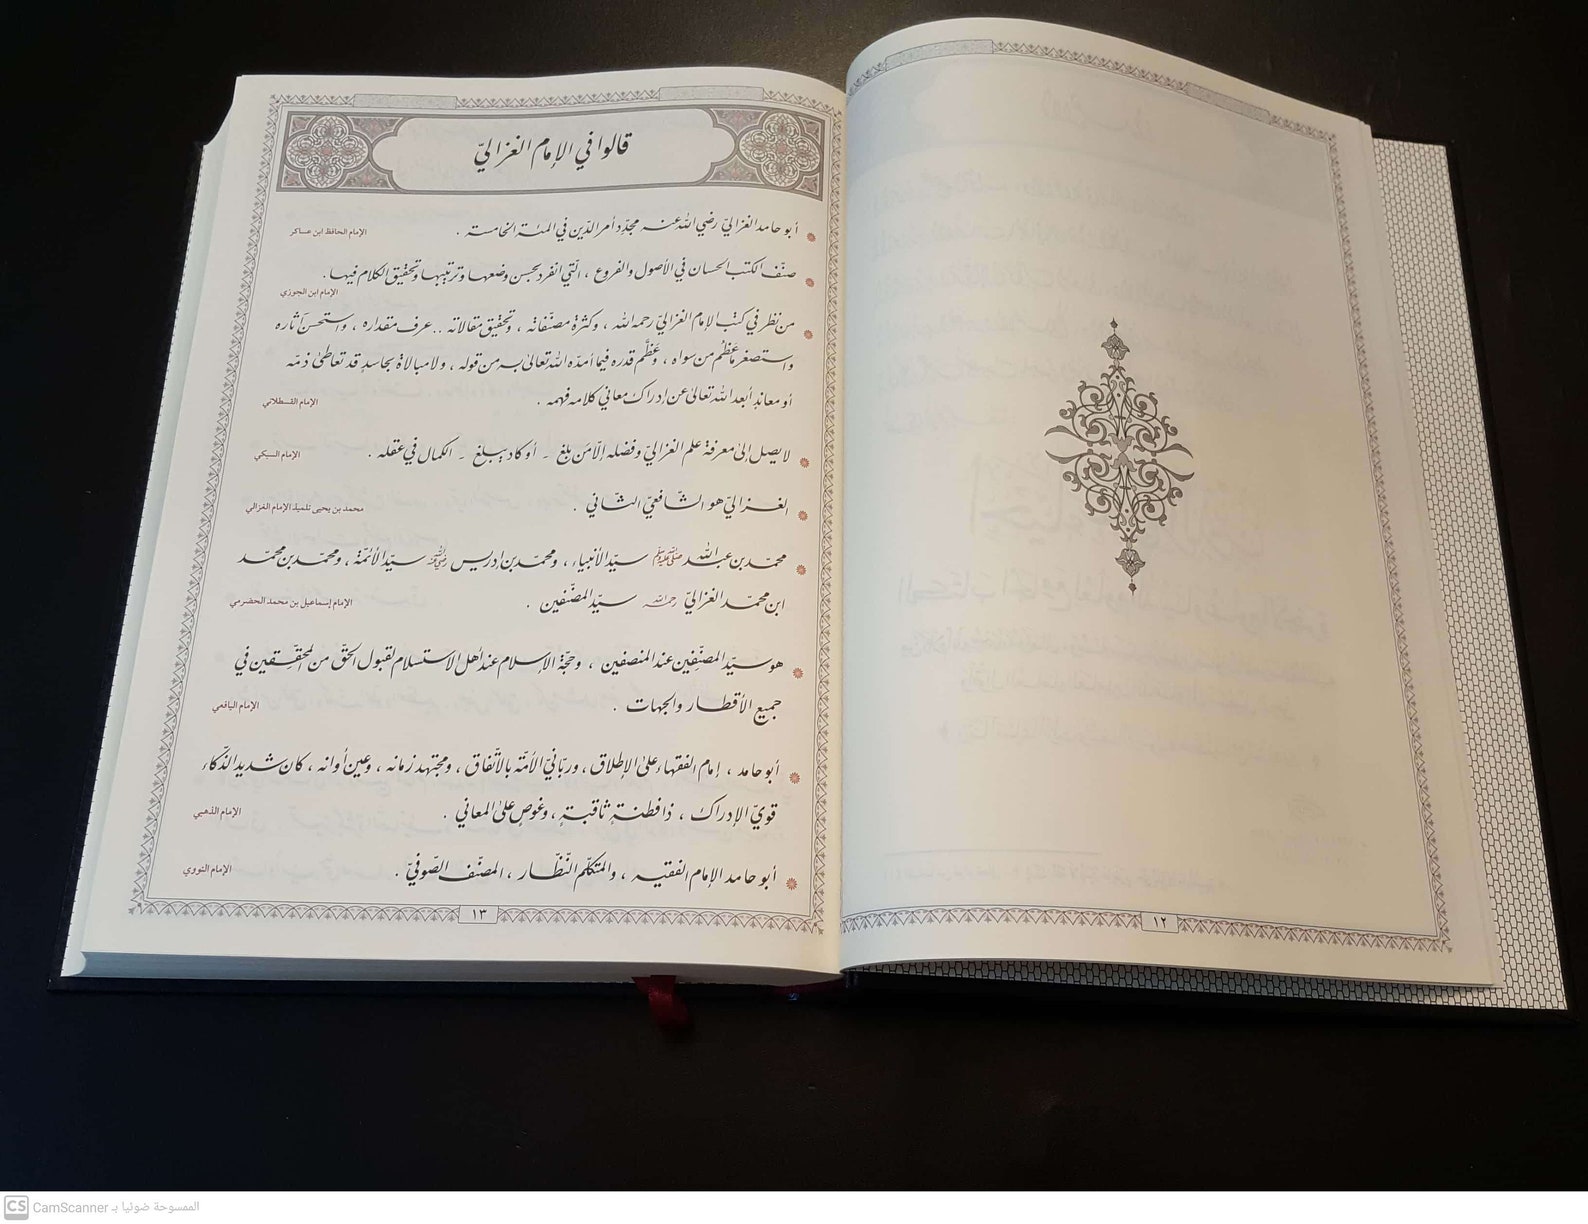 قالوا في الإمام الغزاليّ
أبو حامد الغزاليّ رضي الله عنه مجدّد أمر الدّين في المئة الخامسة .
الإمام الحافظ ابن عساكر
صنّف الكتب الحسان في الأصول والفروع ، الّتي انفرد بحسن وضعها وترتيبها وتحقيق الكلام فيها .
الإمام ابن الجوزي
من نظر في كتب الإمام الغزاليّ رحمه الله ، وكثرة مصنّفاته ، وتحقيق مقالاته .. عرف مقداره ، واستحسن آثاره
واستصغر ما عظُم من سواه ، وعَظُم قدره فيما أمدّه الله تعالى به من قوله ، ولا مبالاة بحاسدٍ قد تعاطى ذمّه
أو معاندٍ أبعد الله تعالى عن إدراك معاني كلامه فهمه .
الإمام القسطلاني
لا يصل إلى معرفة علم الغزاليّ وفضله إلّا من بلغ - أو كاد يبلغ - الكمال في عقله .
الإمام السبكي
الغزاليّ هو الشّافعيّ الثّاني .
محمد بن يحيى تلميذ الإمام الغزالي
محمّد بن عبد الله ﷺ سيّد الأنبياء ، ومحمّد بن إدريس رضي الله عنه سيّد الأئمّة ، ومحمّد بن محمّد
ابن محمّد الغزاليّ رحمه الله سيّد المصنّفين .
الإمام إسماعيل بن محمد الحضرمي
هو سيّد المصنّفين عند المنصفين ، وحجّة الإسلام عند أهل الاستسلام لقبول الحقّ من المحقّقين في
جميع الأقطار والجهات .
الإمام اليافعي
أبو حامد ، إمام الفقهاء على الإطلاق ، وربّانيّ الأمّة بالاتّفاق ، ومجتهد زمانه ، وعين أوانه ، كان شديد الذّكاء
قويّ الإدراك ، ذا فطنةٍ ثاقبةٍ ، وغوصٍ على المعاني .
الإمام الذهبي
أبو حامد الإمام الفقيه ، والمتكلّم النّظّار ، المصنّف الصّوفيّ .
الإمام النووي
١٣
١٢
CS CamScanner الممسوحة ضوئيا بـ